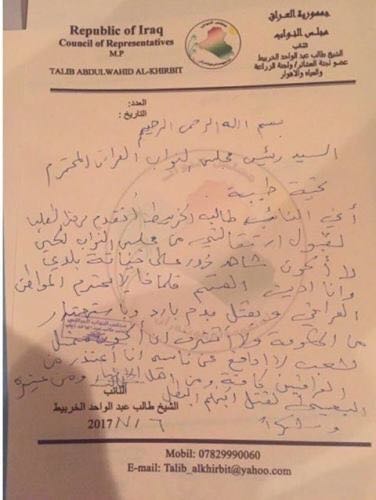 Republic of Iraq
Council of Representatives
M.P
TALIB ABDULWAHID AL-KHIRBIT
جمهورية العراق
مجلس النواب
النائب
الشيخ طالب عبد الواحد الخربيط
عضو لجنة العشائر / لجنة الزراعة
والمياه والاهوار
العدد:
التاريخ:
بسم الله الرحمن الرحيم
السيد رئيس مجلس النواب العراقي المحترم
تحية طيبة
أني النائب طالب الخربيط أتقدم
لقبول استقالتي من مجلس النواب لكي
لا أكون شاهد زور على خيانة بلدي
وانا اديت القسم لا احترم المواطن
العراقي و يقتل بدم بارد و باستهتار
من الحكومة ولا اتشرف ان أكون ممثل
لشعب لا ادافع عن ناسه أنا أعتذر من
العراقيين كافة ومن اهل ومن عشيرة
لقتل ابنهم البطل
و شكراً
النائب
الشيخ طالب عبد الواحد الخربيط
٢٠١٧/٧/٦
Mobil: 07829990060
E-mail: Talib_alkhirbit@yahoo.com